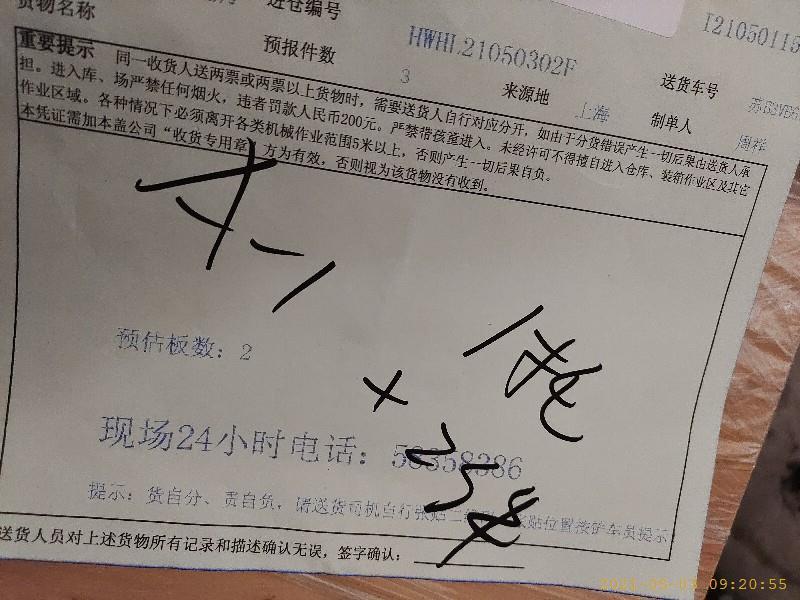 货物名称
进仓编号
HWHL21050302F
I21050115
预报件数
3
来源地
上海
送货车号
制单人
周祥
重要提示 同一收货人送两票或两票以上货物时，需要送货人自行对应分开，如由于分货错误产生一切后果由送货人承
担。进入库、场严禁任何烟火，违者罚款人民币200元。严禁带孩童进入。未经许可不得擅自进入仓库、装箱作业区及其它
作业区域。各种情况下必须离开各类机械作业范围5米以上，否则产生一切后果自负。
本凭证需加本盖公司“收货专用章”方为有效，否则视为该货物没有收到。
预估板数：2
现场24小时电话：58358386
提示：货自分、责自负，请送货司机自行张贴二维码
张贴位置按铲车员提示
送货人员对上述货物所有记录和描述确认无误，签字确认：
2021-05-03 09:20:55